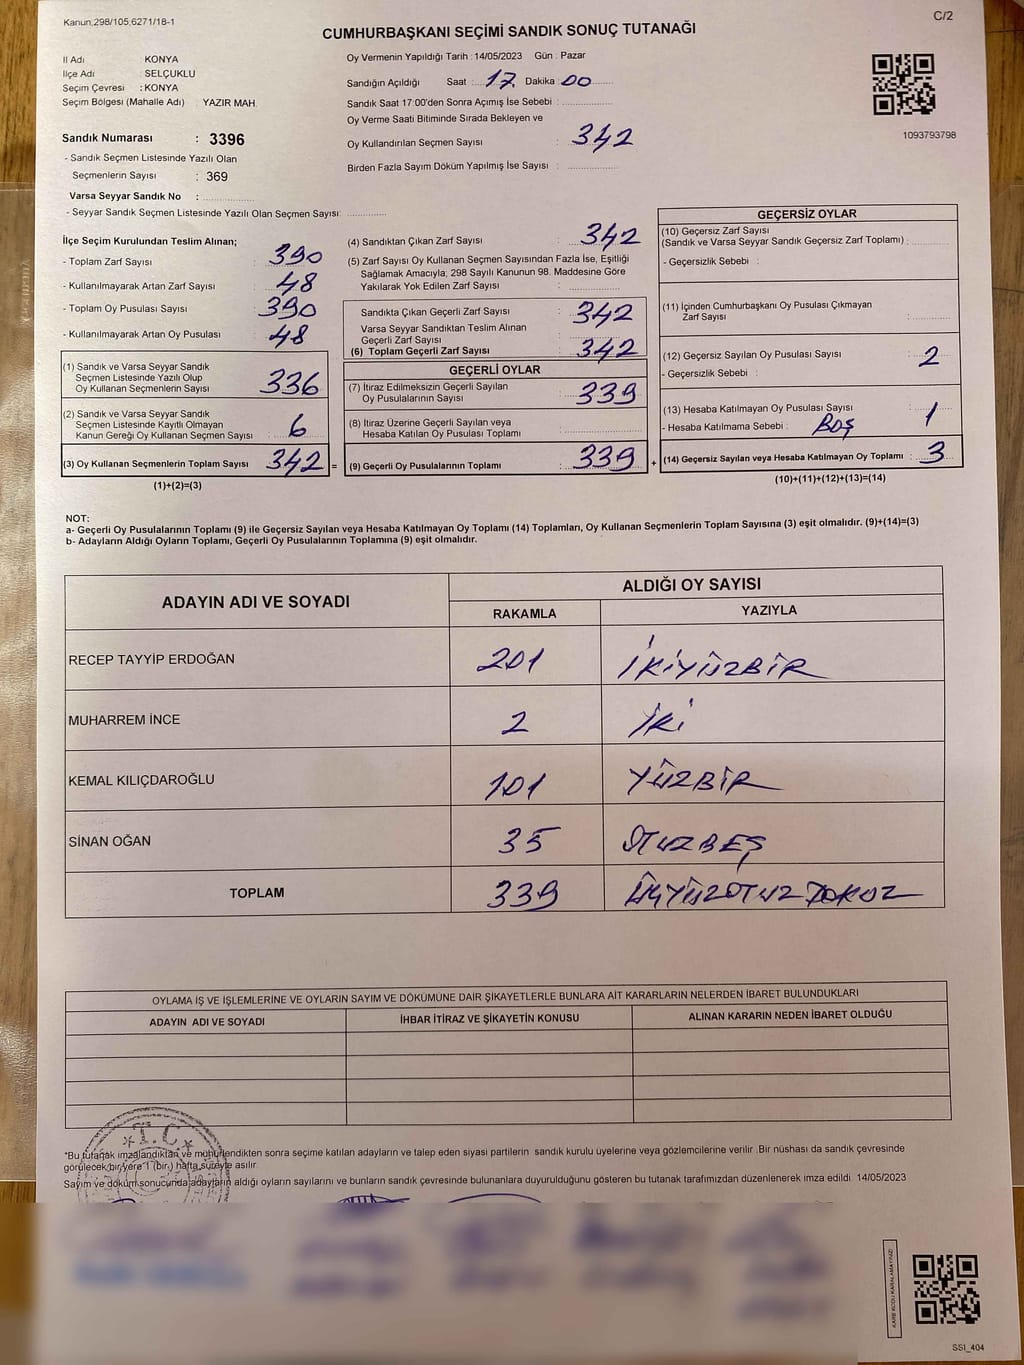 Kanun,298/105,6271/18-1
C/2
CUMHURBAŞKANI SEÇİMİ SANDIK SONUÇ TUTANAĞI
İl Adı KONYA
İlçe Adı : SELÇUKLU
Seçim Çevresi : KONYA
Seçim Bölgesi (Mahalle Adı) : YAZIR MAH.
Oy Vermenin Yapıldığı Tarih : 14/05/2023 Gün : Pazar
Sandığın Açıldığı Saat : 17 Dakika : 00
Sandık Saat 17:00'den Sonra Açımış İse Sebebi :
Oy Verme Saati Bitiminde Sırada Bekleyen ve
Oy Kullandırılan Seçmen Sayısı : 342
Birden Fazla Sayım Döküm Yapılmış İse Sayısı :
1093793798
Sandık Numarası : 3396
- Sandık Seçmen Listesinde Yazılı Olan
Seçmenlerin Sayısı : 369
Varsa Seyyar Sandık No :
- Seyyar Sandık Seçmen Listesinde Yazılı Olan Seçmen Sayısı:
İlçe Seçim Kurulundan Teslim Alınan;
- Toplam Zarf Sayısı : 390
- Kullanılmayarak Artan Zarf Sayısı : 48
- Toplam Oy Pusulası Sayısı : 390
- Kullanılmayarak Artan Oy Pusulası : 48
(1) Sandık ve Varsa Seyyar Sandık
Seçmen Listesinde Yazılı Olup
Oy Kullanan Seçmenlerin Sayısı : 336
(2) Sandık ve Varsa Seyyar Sandık
Seçmen Listesinde Kayıtlı Olmayan
Kanun Gereği Oy Kullanan Seçmen Sayısı : 6
(3) Oy Kullanan Seçmenlerin Toplam Sayısı : 342 =
(1)+(2)=(3)
(4) Sandıktan Çıkan Zarf Sayısı : 342
(5) Zarf Sayısı Oy Kullanan Seçmen Sayısından Fazla İse, Eşitliği
Sağlamak Amacıyla, 298 Sayılı Kanunun 98. Maddesine Göre
Yakılarak Yok Edilen Zarf Sayısı :
Sandıkta Çıkan Geçerli Zarf Sayısı : 342
Varsa Seyyar Sandıktan Teslim Alınan
Geçerli Zarf Sayısı :
(6) Toplam Geçerli Zarf Sayısı : 342
GEÇERLİ OYLAR
(7) İtiraz Edilmeksizin Geçerli Sayılan
Oy Pusulalarının Sayısı : 339
(8) İtiraz Üzerine Geçerli Sayılan veya
Hesaba Katılan Oy Pusulası Toplamı :
(9) Geçerli Oy Pusulalarının Toplamı : 339 +
GEÇERSİZ OYLAR
(10) Geçersiz Zarf Sayısı
(Sandık ve Varsa Seyyar Sandık Geçersiz Zarf Toplamı) :
- Geçersizlik Sebebi :
(11) İçinden Cumhurbaşkanı Oy Pusulası Çıkmayan
Zarf Sayısı :
(12) Geçersiz Sayılan Oy Pusulası Sayısı : 2
- Geçersizlik Sebebi :
(13) Hesaba Katılmayan Oy Pusulası Sayısı : 1
- Hesaba Katılmama Sebebi : BOŞ
(14) Geçersiz Sayılan veya Hesaba Katılmayan Oy Toplamı : 3
(10)+(11)+(12)+(13)=(14)
NOT:
a- Geçerli Oy Pusulalarının Toplamı (9) ile Geçersiz Sayılan veya Hesaba Katılmayan Oy Toplamı (14) Toplamları, Oy Kullanan Seçmenlerin Toplam Sayısına (3) eşit olmalıdır. (9)+(14)=(3)
b- Adayların Aldığı Oyların Toplamı, Geçerli Oy Pusulalarının Toplamına (9) eşit olmalıdır.
ADAYIN ADI VE SOYADI
ALDIĞI OY SAYISI
RAKAMLA YAZIYLA
RECEP TAYYİP ERDOĞAN 201 İKİYÜZBİR
MUHARREM İNCE 2 İKİ
KEMAL KILIÇDAROĞLU 101 YÜZBİR
SİNAN OĞAN 35 OTUZBEŞ
TOPLAM 339 ÜÇYÜZOTUZ DOKUZ
OYLAMA İŞ VE İŞLEMLERİNE VE OYLARIN SAYIM VE DÖKÜMÜNE DAİR ŞİKAYETLERLE BUNLARA AİT KARARLARIN NELERDEN İBARET BULUNDUKLARI
ADAYIN ADI VE SOYADI İHBAR İTİRAZ VE ŞİKAYETİN KONUSU ALINAN KARARIN NEDEN İBARET OLDUĞU
T.C.
*Bu tutanak imzalandıktan ve mühürlendikten sonra seçime katılan adayların ve talep eden siyasi partilerin sandık kurulu üyelerine veya gözlemcilerine verilir. Bir nüshası da sandık çevresinde
görülecek bir yere 1 (bir) hafta süreyle asılır.
Sayım ve döküm sonucunda adayların aldığı oyların sayılarını ve bunların sandık çevresinde bulunanlara duyurulduğunu gösteren bu tutanak tarafımızdan düzenlenerek imza edildi. 14/05/2023
KARE KODU KARALAMAYINIZ!
SSI_404